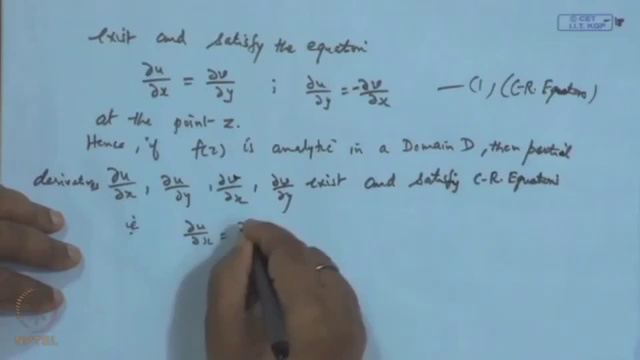 © CET
I.I.T. KGP
exist and satisfy the equation
∂u/∂x = ∂v/∂y ; ∂u/∂y = -∂v/∂x — (1) (C-R. Equations)
at the point z.
Hence, if f(z) is analytic in a Domain D, then partial
derivatives ∂u/∂x, ∂u/∂y, ∂v/∂x, ∂v/∂y exist and satisfy C-R. Equations
i.e. ∂u/∂x =
NPTEL